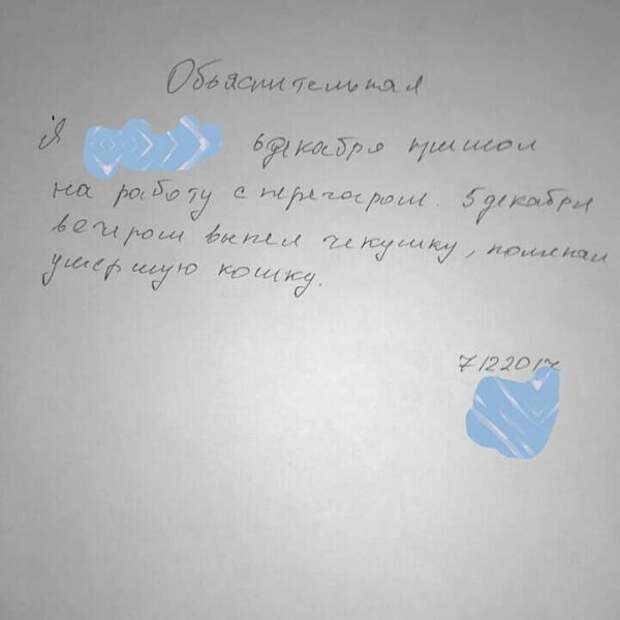 Объяснительная
Я 6 декабря пришол
на работу с перегаром. 5 декабря
вечером выпел чекушку, поменал
умершую кошку.
7 12 2017